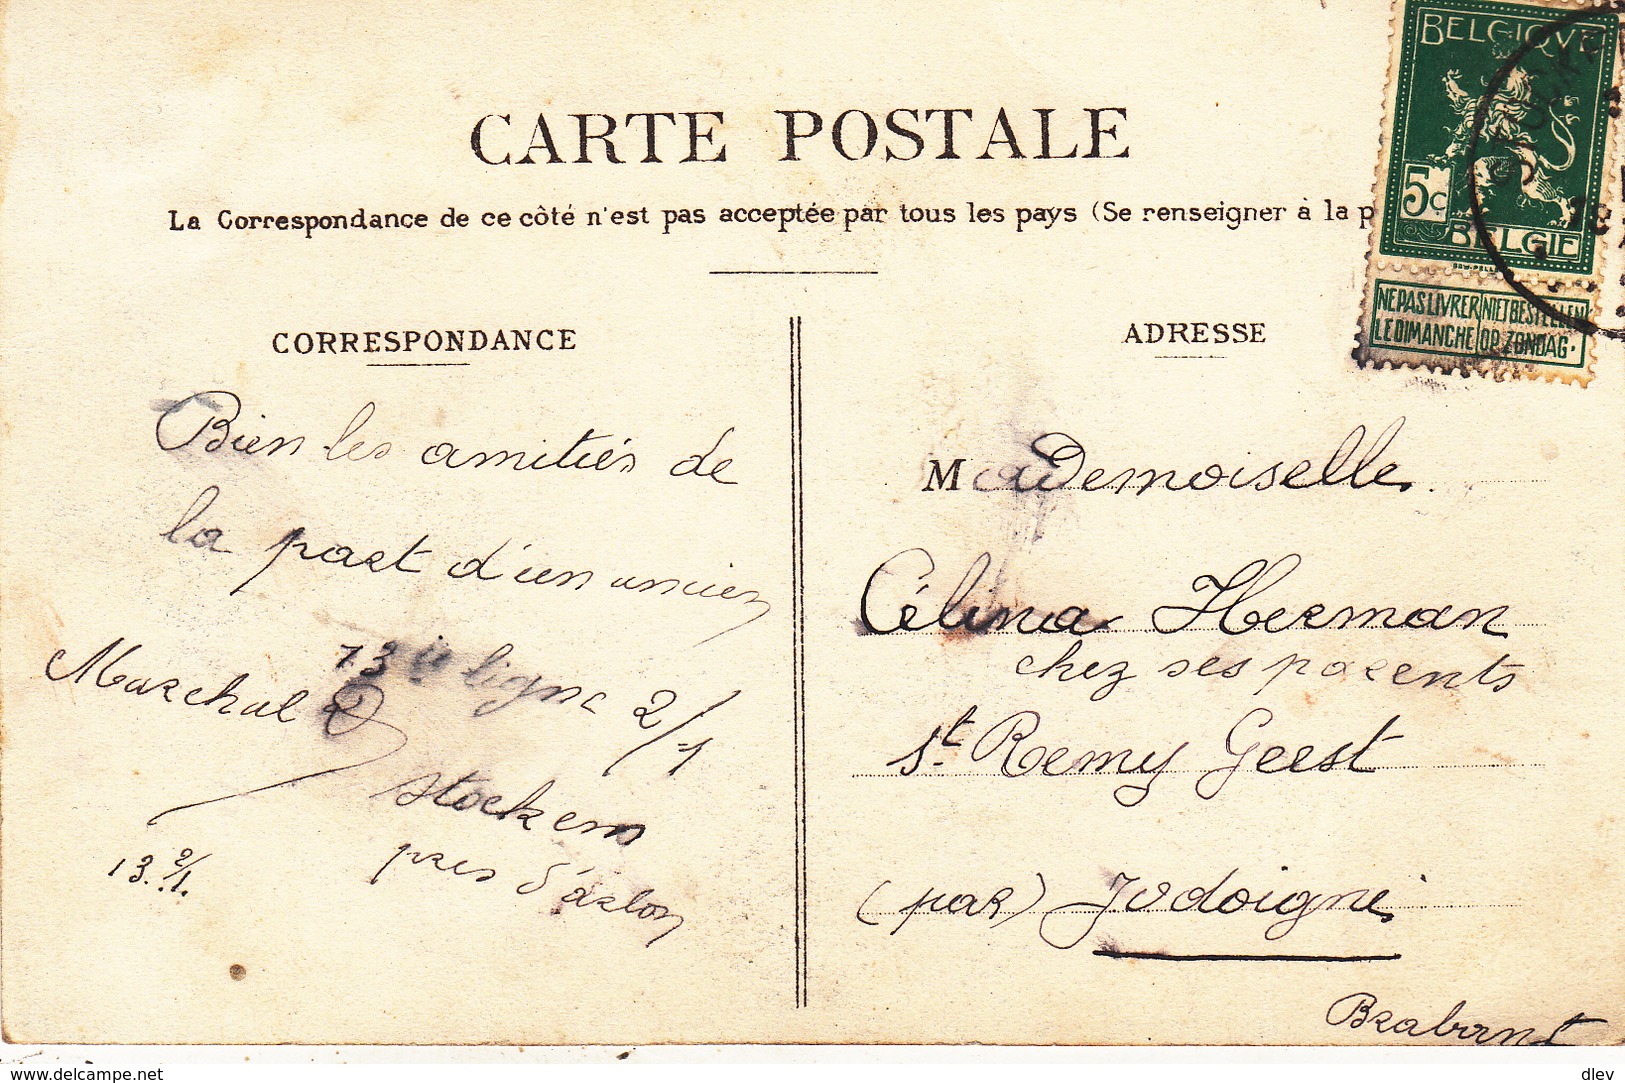 CARTE POSTALE
BELGIQUE
5c
BELGIE
NE PAS LIVRER LE DIMANCHE
NIET BESTELLEN OP ZONDAG.
La Correspondance de ce côté n'est pas acceptée par tous les pays (Se renseigner à la p
CORRESPONDANCE
Bien les amitiés de
la part d'un ancien
Marchal
ligne 2/1
stockem
pres d'arlon
13. 2/1.
ADRESSE
Mademoiselle
Célina Herman
chez ses parents
St. Remy Geest
(par) Jodoigne
Brabant
www.delcampe.net
dlev